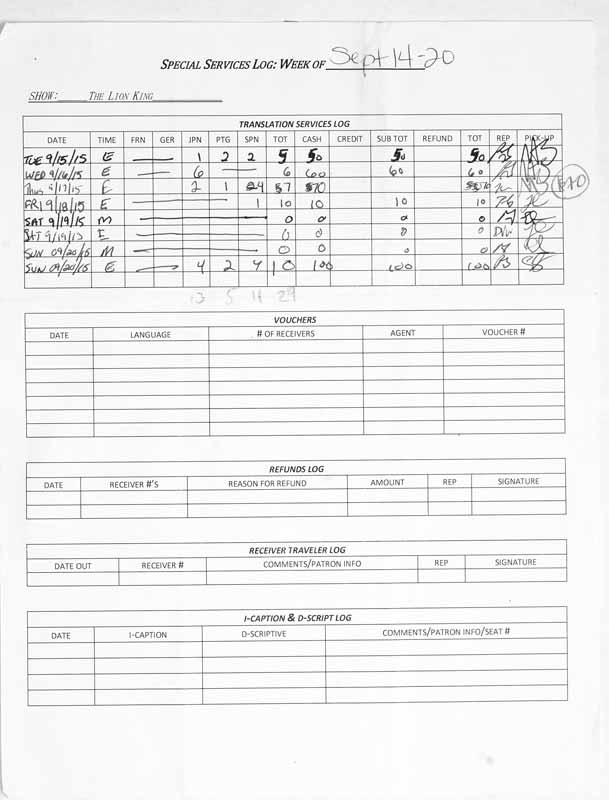 SPECIAL SERVICES LOG: WEEK OF Sept 14-20
SHOW: THE LION KING
TRANSLATION SERVICES LOG
DATE TIME FRN GER JPN PTG SPN TOT CASH CREDIT SUB TOT REFUND TOT REP PICK-UP
TUE 9/15/15 E — 1 2 2 5 50 50 50
WED 9/16/15 E — 6 — 6 60 60 60
Thus 9/17/15 E 2 1 4 7 $70 70 $70
FRI 9/18/15 E — 1 10 10 10 10
SAT 9/19/15 M — 0 0 0 0
SAT 9/19/15 E — 0 0 0 0
SUN 09/20/15 M — 0 0 0 0
SUN 09/20/15 E — 4 2 4 10 100 100 100
13 5 11 29
VOUCHERS
DATE LANGUAGE # OF RECEIVERS AGENT VOUCHER #
REFUNDS LOG
DATE RECEIVER #'S REASON FOR REFUND AMOUNT REP SIGNATURE
RECEIVER TRAVELER LOG
DATE OUT RECEIVER # COMMENTS/PATRON INFO REP SIGNATURE
I-CAPTION & D-SCRIPT LOG
DATE I-CAPTION D-SCRIPTIVE COMMENTS/PATRON INFO/SEAT #